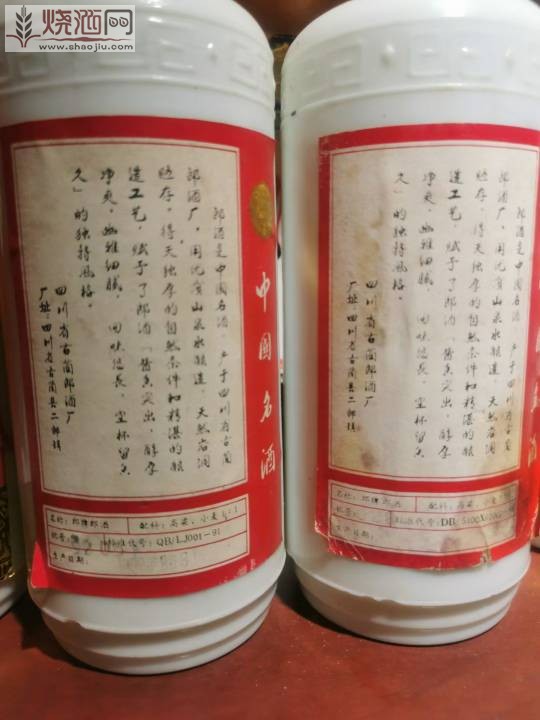 烧酒网
www.shaojiu.com
郎酒是中国名酒，产于四川省古蔺
郎酒厂，用沉有山泉水酿造，天然岩洞
贮存，得天独厚的自然条件和精湛的酿
造工艺，赋予了郎酒「酱香突出，醇厚
净爽，幽雅细腻，回味悠长，空杯留香
久」的独特风格。
四川省古蔺郎酒厂
厂址：四川省古蔺县二郎镇
中国名酒
名称：郎牌郎酒 配料：高粱、小麦
批号： 标准代号：QB/LJ001-91
生产日期：
郎酒是中国名酒，产于四川省古蔺
郎酒厂，用沉有山泉水酿造，天然岩洞
贮存，得天独厚的自然条件和精湛的酿
造工艺，赋予了郎酒「酱香突出，醇厚
净爽，幽雅细腻，回味悠长，空杯留香
久」的独特风格。
四川省古蔺郎酒厂
厂址：四川省古蔺县二郎镇
名称：郎牌郎酒 配料：高粱、小麦
批号： 标准代号：DB/5100X
生产日期：